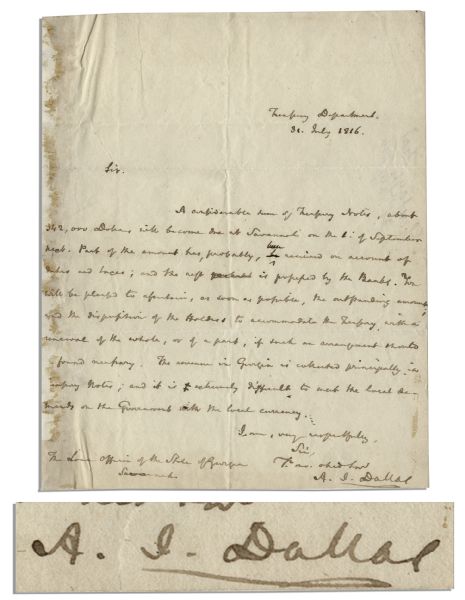 Treasury Department.
31. July 1816.
Sir.
A considerable sum of Treasury Notes, about
342,000 Dollars will become due at Savannah on the 1: of September
next. Part of the amount has, probably, been received on account of
duties and taxes; and the rest is possessed by the Banks. You
will be pleased to ascertain, as soon as possible, the outstanding amount,
and the disposition of the Holders to accommodate the Treasury, with a
renewal of the whole, or of a part, if such an arrangement should
be found necessary. The revenue in Georgia is collected principally in
Treasury Notes; and it is extremely difficult to meet the local de-
mands on the Government with the local currency.
I am, very respectfully,
Sir,
Yr. ob. Serv
A. J. Dallas
The Loan Officer of the State of Georgia
Savannah.
A. J. Dallas